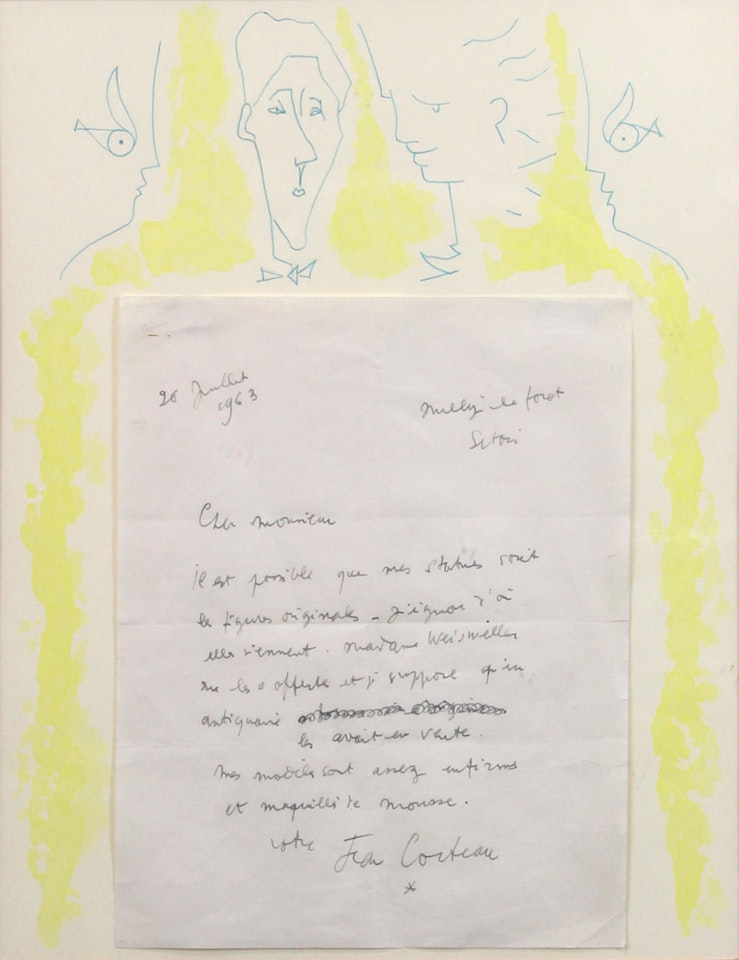 26 Juillet
1963
Milly-la foret
S et oise
Cher monsieur
il est possible que mes statues soient
les figures originales - j'ignore d'où
elles viennent. Madame Weisweiller
me les a offertes et je suppose qu'un
antiquaire
les avait en vente.
mes modèles sont assez infirmes
et maquillés de mousse.
votre Jean Cocteau
*